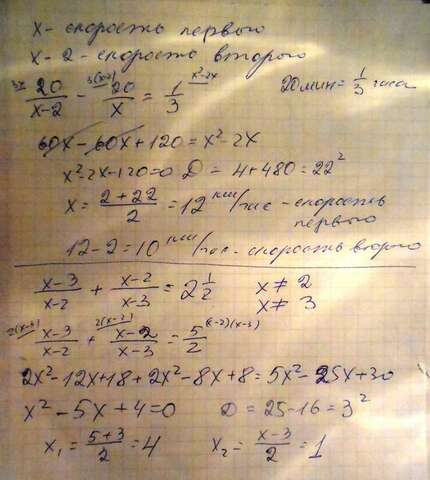 x - скорость первого
x - 2 - скорость второго
3x 20/(x-2) - 3(x-2) 20/x = 1/3 x²-2x 20 мин = 1/3 часа
60x - 60x + 120 = x² - 2x
x² - 2x - 120 = 0 D = 4 + 480 = 22²
x = (2 + 22)/2 = 12 км/час - скорость первого
12 - 2 = 10 км/час - скорость второго
(x-3)/(x-2) + (x-2)/(x-3) = 2 1/2 x ≠ 2
x ≠ 3
2(x-3) (x-3)/(x-2) + 2(x-2) (x-2)/(x-3) = 5/2 (x-2)(x-3)
2x² - 12x + 18 + 2x² - 8x + 8 = 5x² - 25x + 30
x² - 5x + 4 = 0 D = 25 - 16 = 3²
x₁ = (5+3)/2 = 4 x₂ = (x-3)/2 = 1